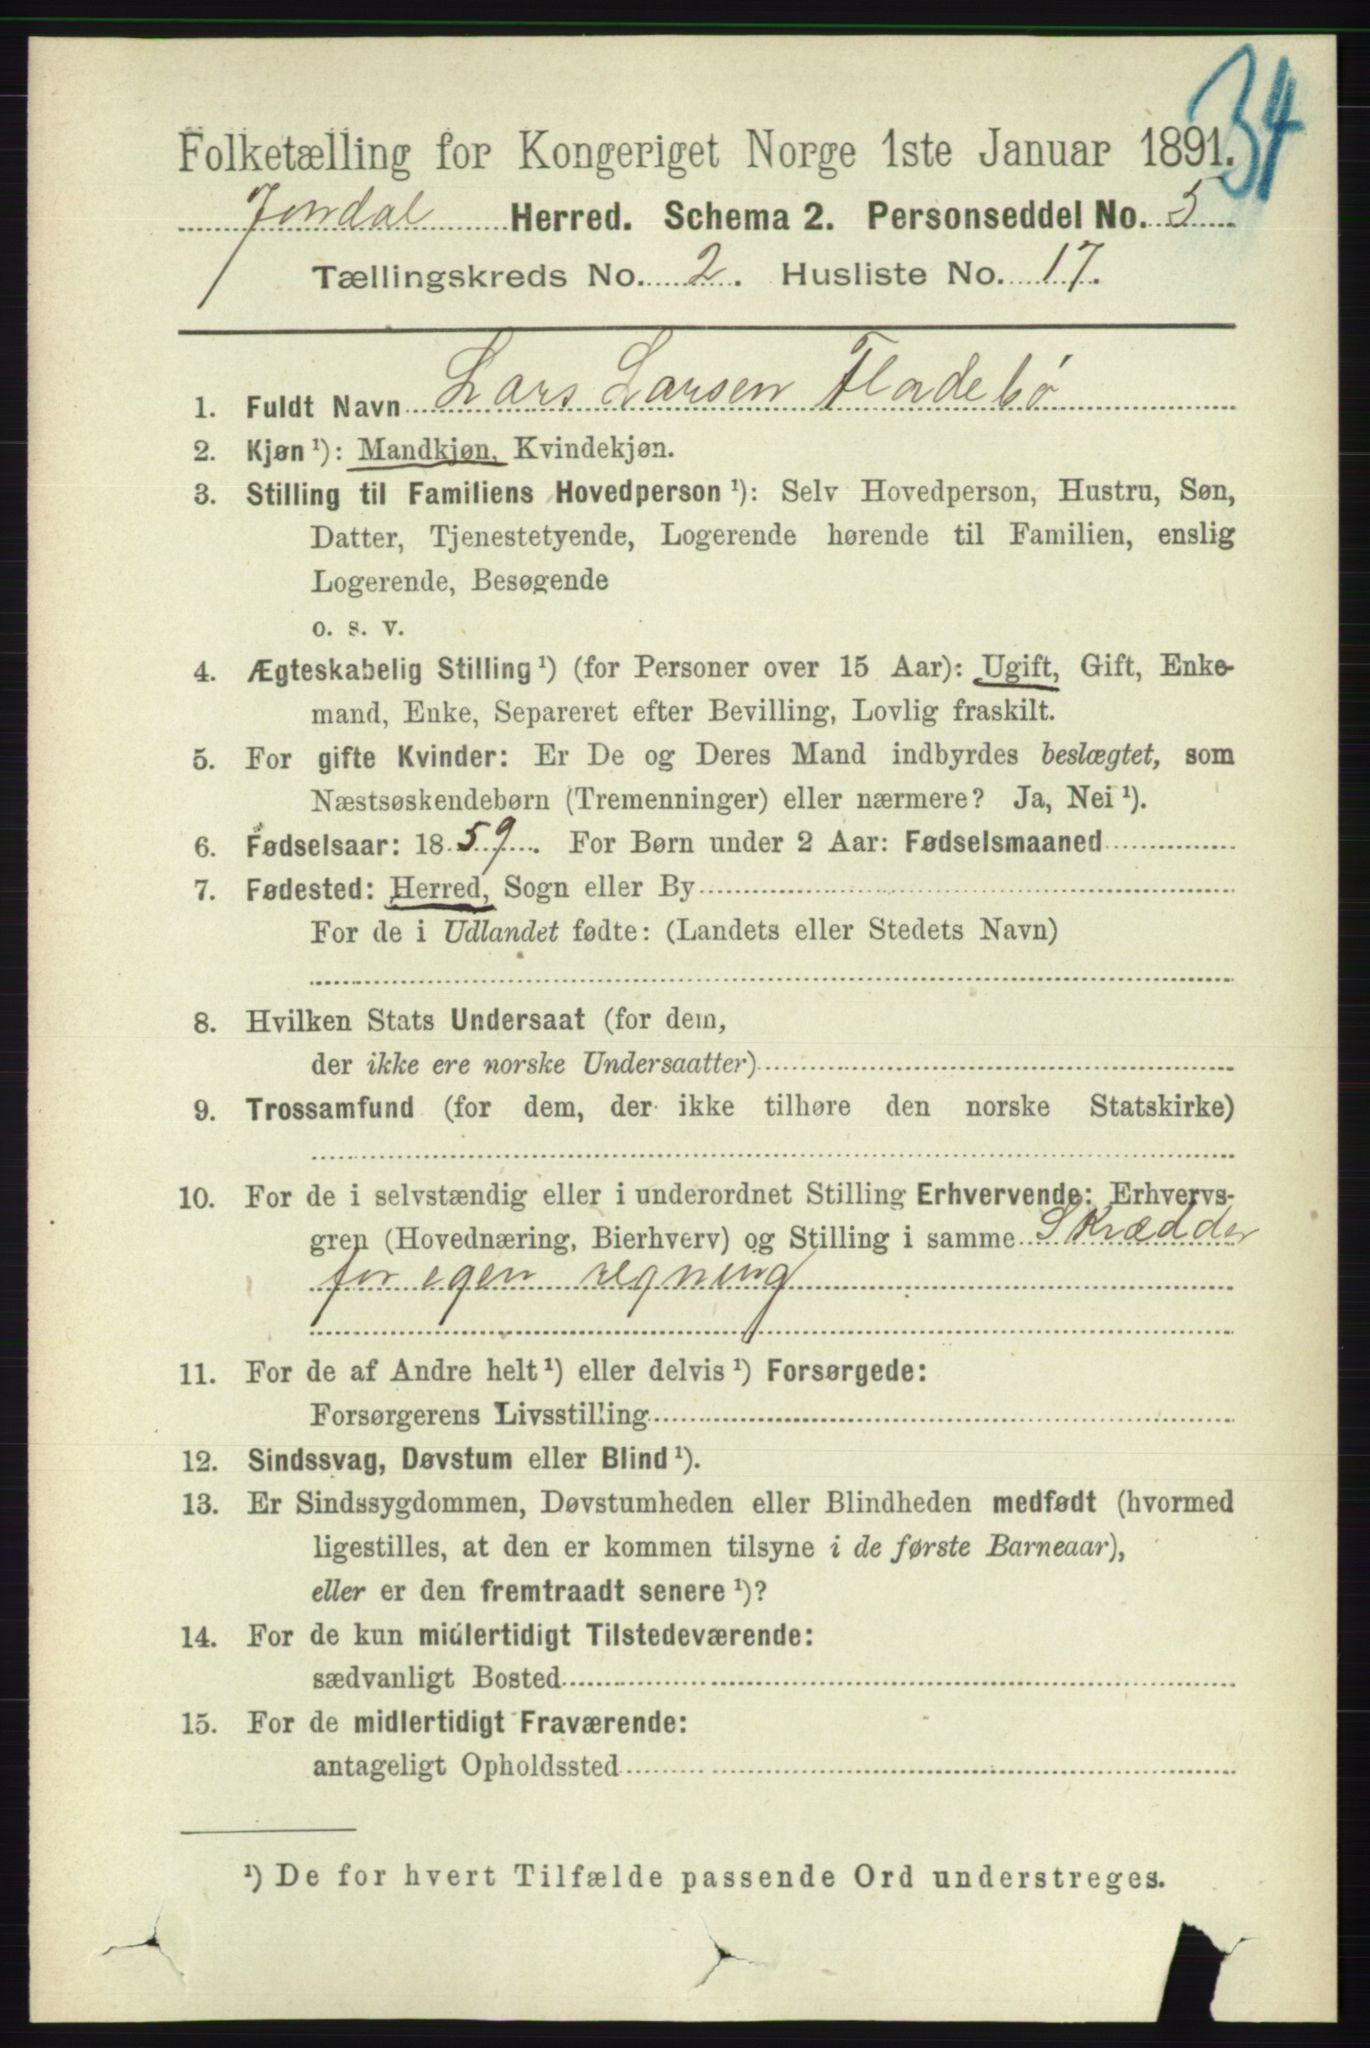 34
Folketælling for Kongeriget Norge 1ste Januar 1891.
Jondal Herred. Schema 2. Personseddel No. 5
Tællingskreds No. 2. Husliste No. 17.
1. Fuldt Navn Lars Larsen Fladebø
2. Kjøn ¹): Mandkjøn, Kvindekjøn.
3. Stilling til Familiens Hovedperson ¹): Selv Hovedperson, Hustru, Søn,
Datter, Tjenestetyende, Logerende hørende til Familien, enslig
Logerende, Besøgende
o. s. v.
4. Ægteskabelig Stilling ¹) (for Personer over 15 Aar): Ugift, Gift, Enke-
mand, Enke, Separeret efter Bevilling, Lovlig fraskilt.
5. For gifte Kvinder: Er De og Deres Mand indbyrdes beslægtet, som
Næstsøskendebørn (Tremenninger) eller nærmere? Ja, Nei ¹).
6. Fødselsaar: 1859. For Børn under 2 Aar: Fødselsmaaned
7. Fødested: Herred, Sogn eller By
For de i Udlandet fødte: (Landets eller Stedets Navn)
8. Hvilken Stats Undersaat (for dem,
der ikke ere norske Undersaatter)
9. Trossamfund (for dem, der ikke tilhøre den norske Statskirke)
10. For de i selvstændig eller i underordnet Stilling Erhvervende: Erhvervs-
gren (Hovednæring, Bierhverv) og Stilling i samme Skrædder
for egen regning
11. For de af Andre helt ¹) eller delvis ¹) Forsørgede:
Forsørgerens Livsstilling
12. Sindssvag, Døvstum eller Blind ¹).
13. Er Sindssygdommen, Døvstumheden eller Blindheden medfødt (hvormed
ligestilles, at den er kommen tilsyne i de første Barneaar),
eller er den fremtraadt senere ¹)?
14. For de kun midlertidigt Tilstedeværende:
sædvanligt Bosted
15. For de midlertidigt Fraværende:
antageligt Opholdssted
¹) De for hvert Tilfælde passende Ord understreges.